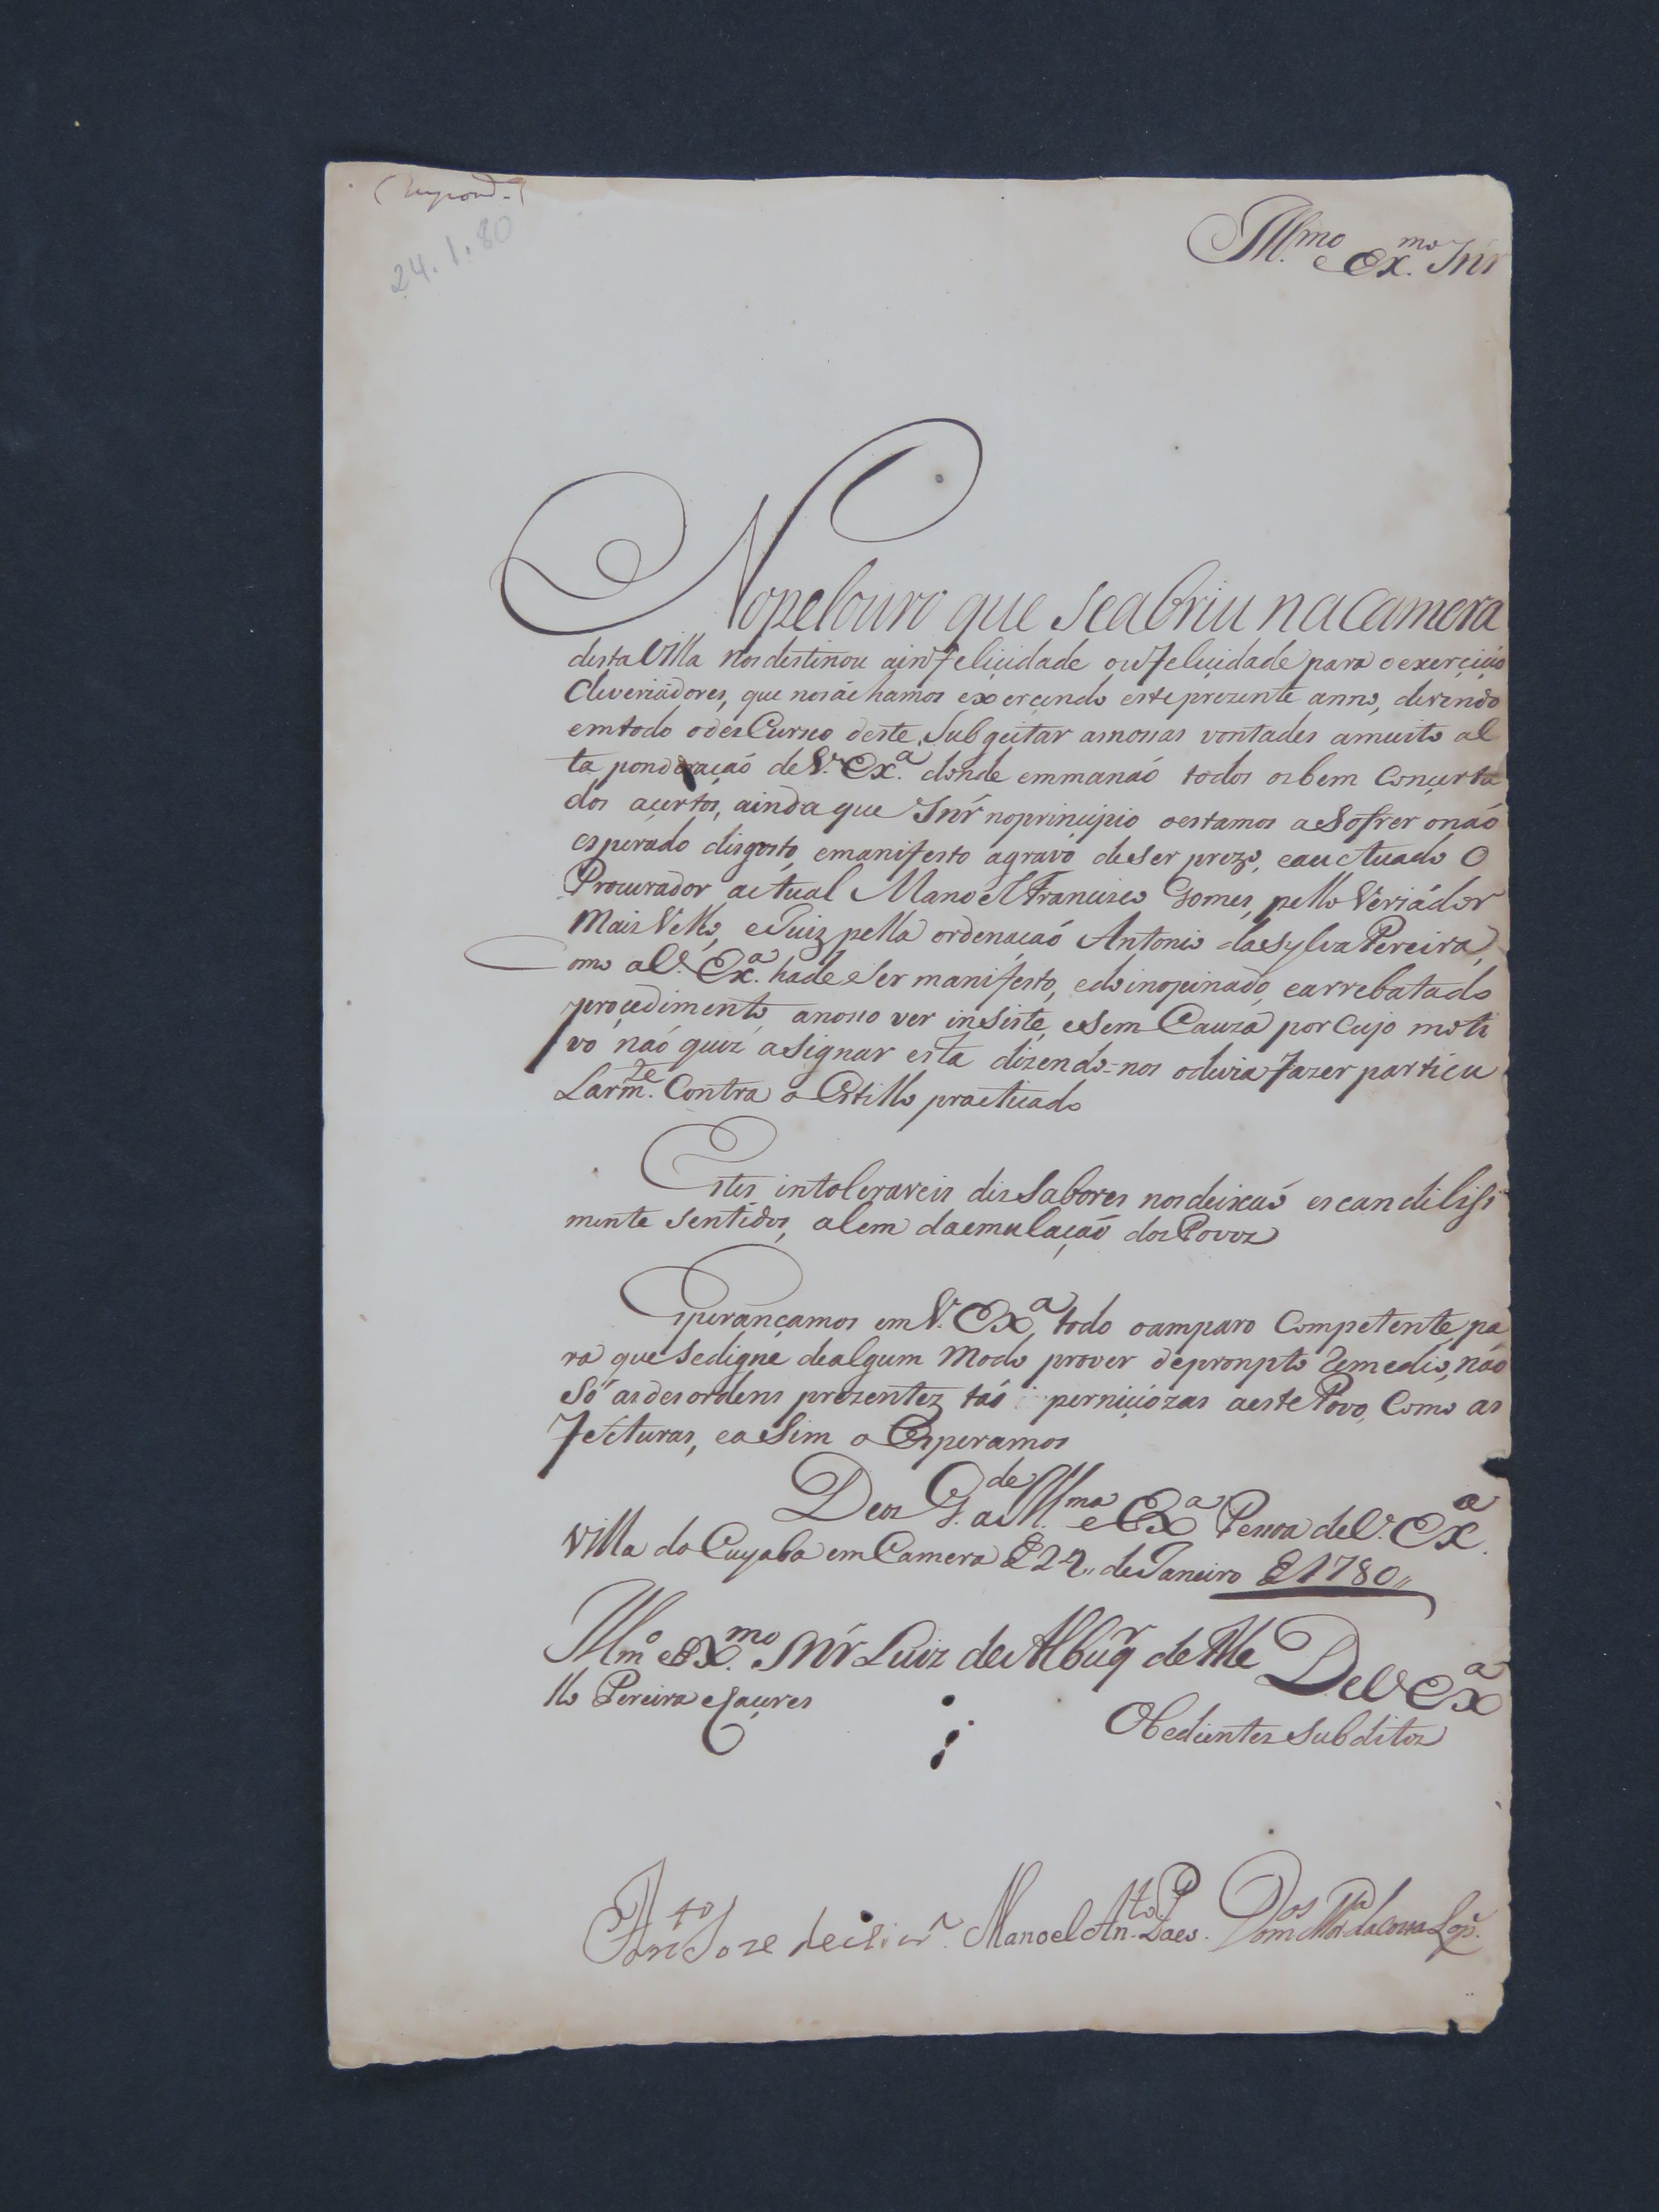 (Respond.)
24.1.80
Ill.mo e Ex.mo Snr
No pelouro que se abriu na camera
desta Villa nos destinou a infeliçidade ou feliçidade para o exerçiçio
de veriadores, que nos áchamos exerçendo este prezente anno, devendo
em todo o desCurso deste, Subgeitar as nossas vontades a muito al
ta ponderaçaó de V. Ex.a donde emmanaó todos os bem Conçerta
dos açertos, ainda que Snr no prinçipio o estamos a Sofrer o naó
esperado disgosto, e manifesto agravo de Ser prezo, e auctuado O
Procurador actual Manoel Francisco Gomes, pello Veriádor
Mais Velho, e Juiz pella ordenaçaó Antonio da Sylva Pereira,
Como a V. Ex.a hade Ser manifesto, e do inopinado, e arrebatado
proçedimento, a nosso ver insiste, e Sem Cauza por Cujo moti
vo naó quiz aSignar esta dizendo-nos o devia fazer particu
Larm.te Contra o Estillo practicado
Estes intoleraveis disSabores nos deixaó escandilissi
mente Sentidos, alem da emulaçaó dos Povos
Esperançamos em V. Ex.a todo o amparo Competente, pa
ra que Se digne de algum Modo prover de pronpto Remedio, naó
Só as desordens prezentez taó perniçiózas a este Povo, Como as
Fucturas, e aSim o Esperamos
Deos G.de a Ill.ma e Ex.a Pessoa de V. Ex.a
Villa do Cuyaba em Camera 24,, de Janeiro 1780,,
Illm.o e Ex.mo Snr Luiz de Albuq.r de Me
llo Pereira e Caçeres
De V Ex.a
Obedientes Subditos
Ant.to Joze de
Manoel An.to Paes.
Dom.os da Costa